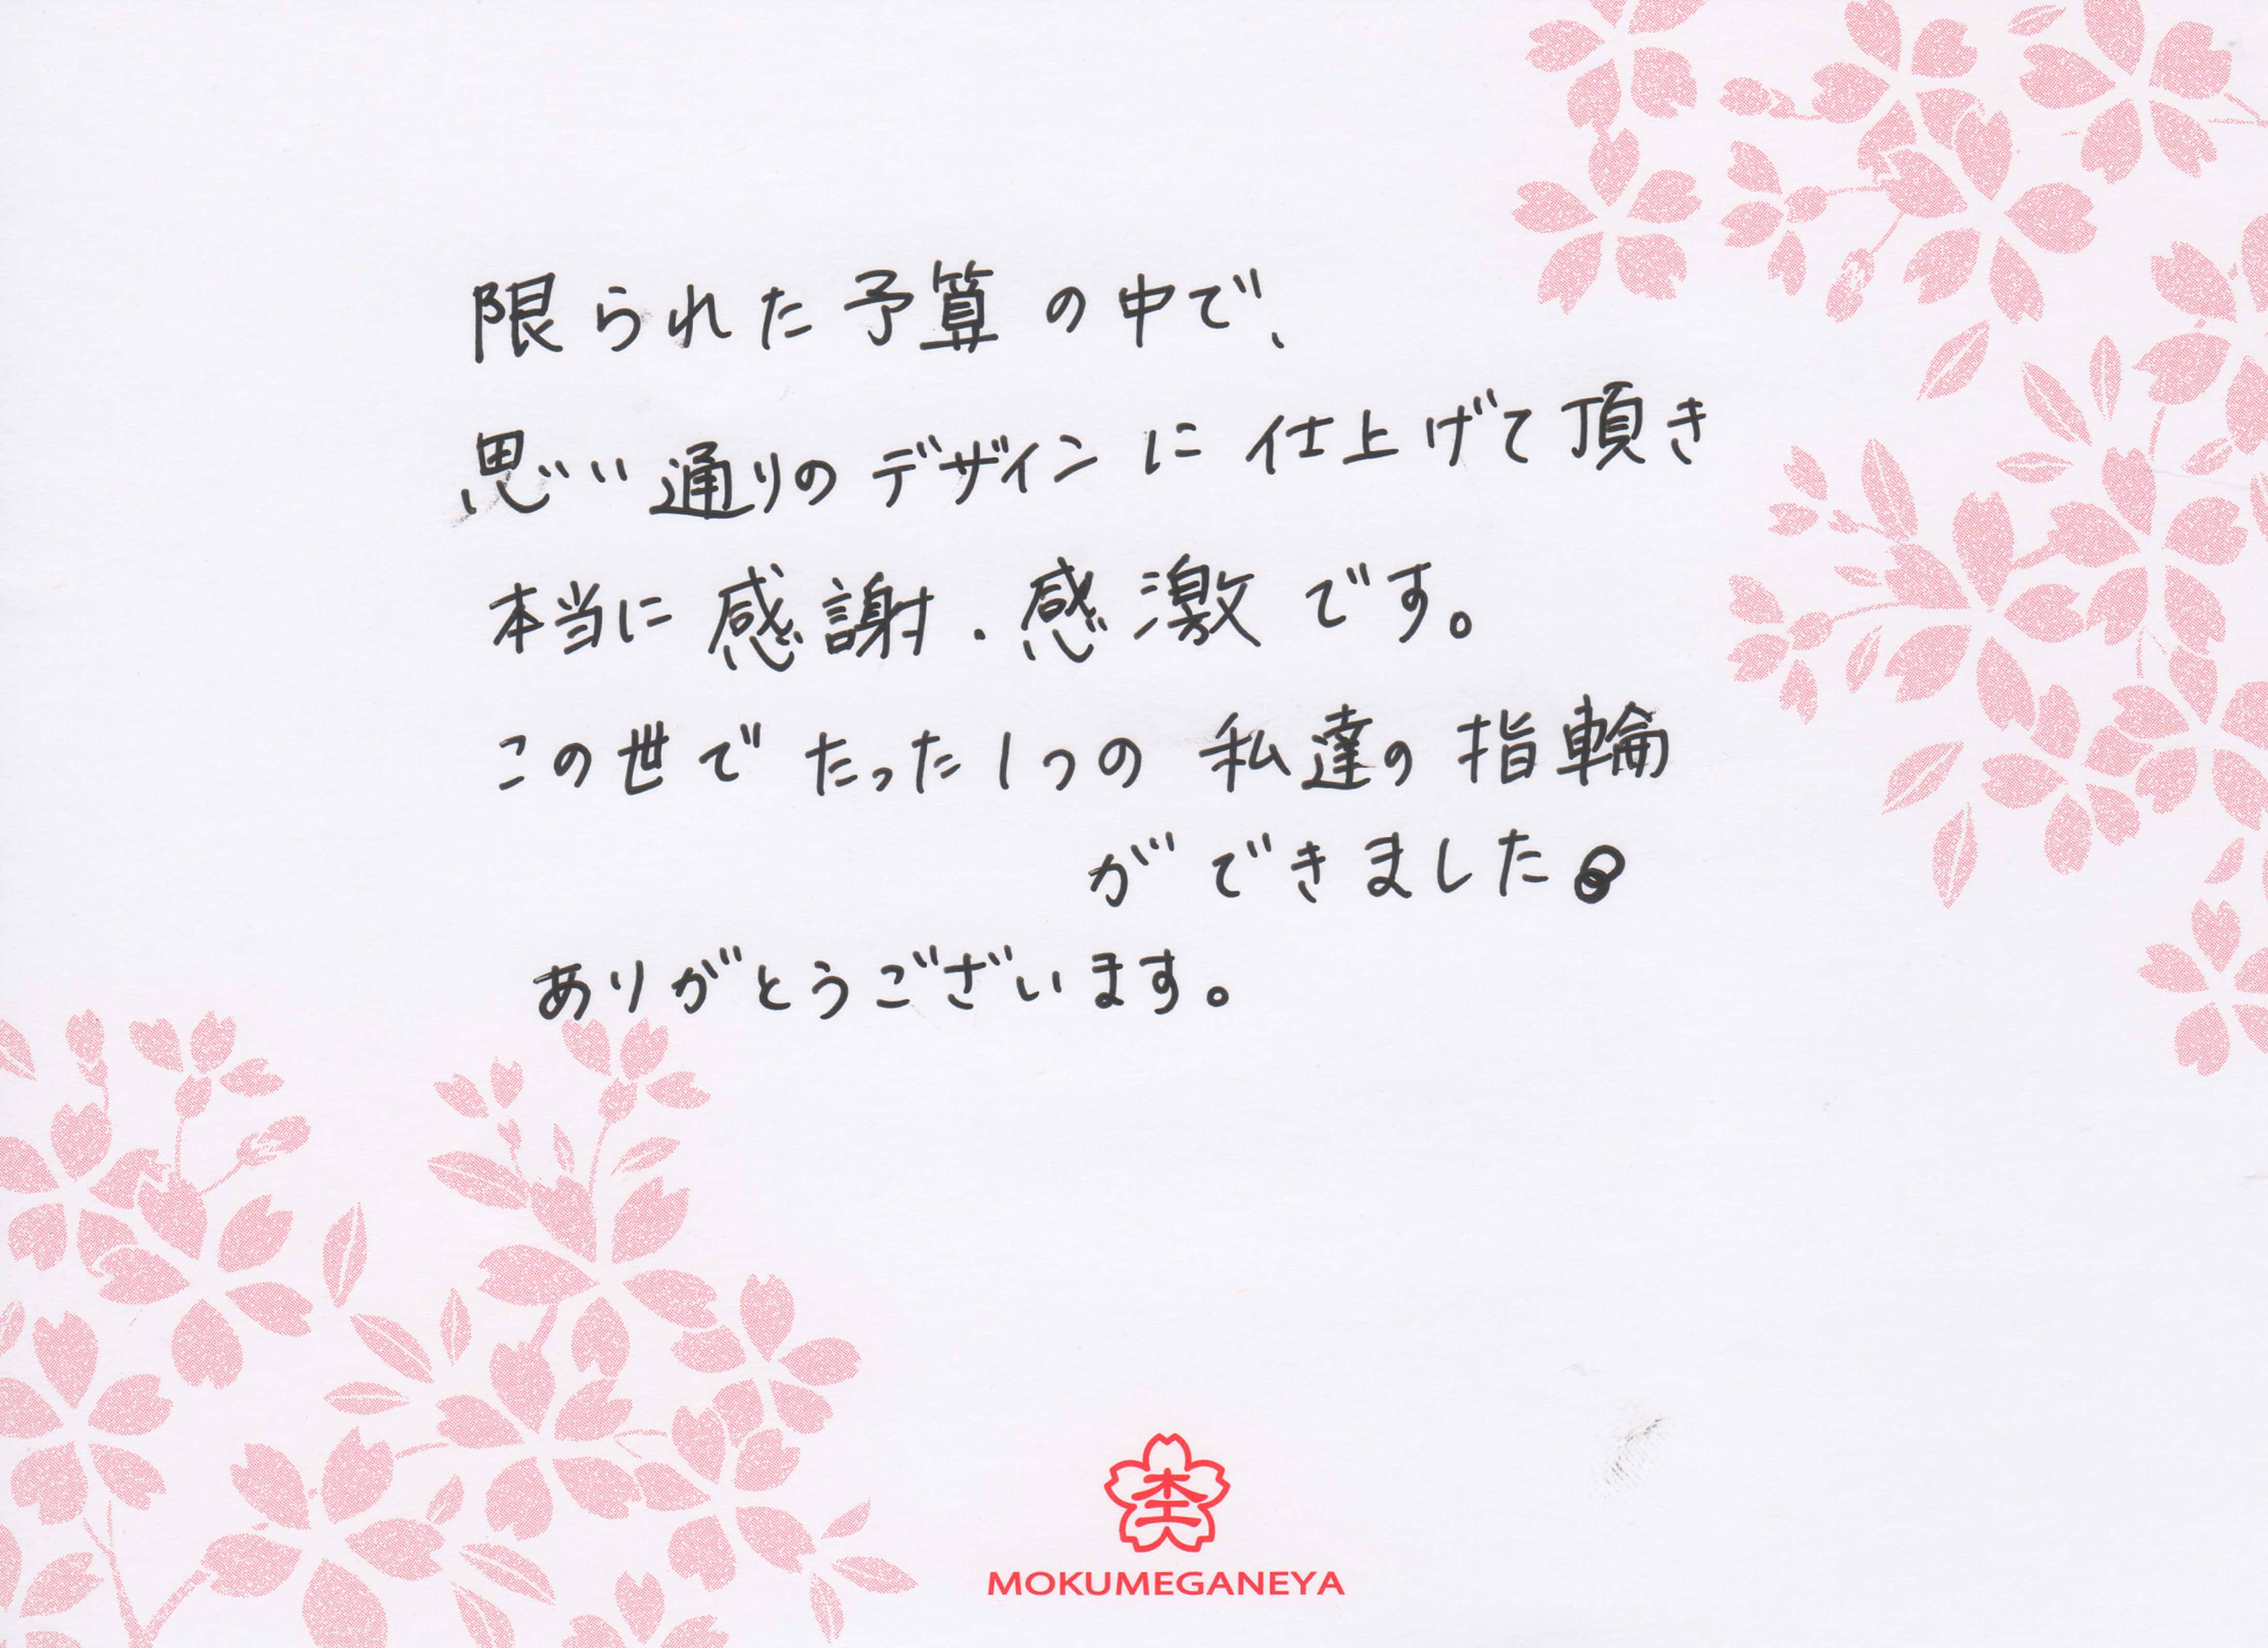 限られた予算の中で、
思い通りのデザインに仕上げて頂き
本当に感謝．感激です。
この世でたった1つの私達の指輪
ができました
ありがとうございます。
杢
MOKUMEGANEYA